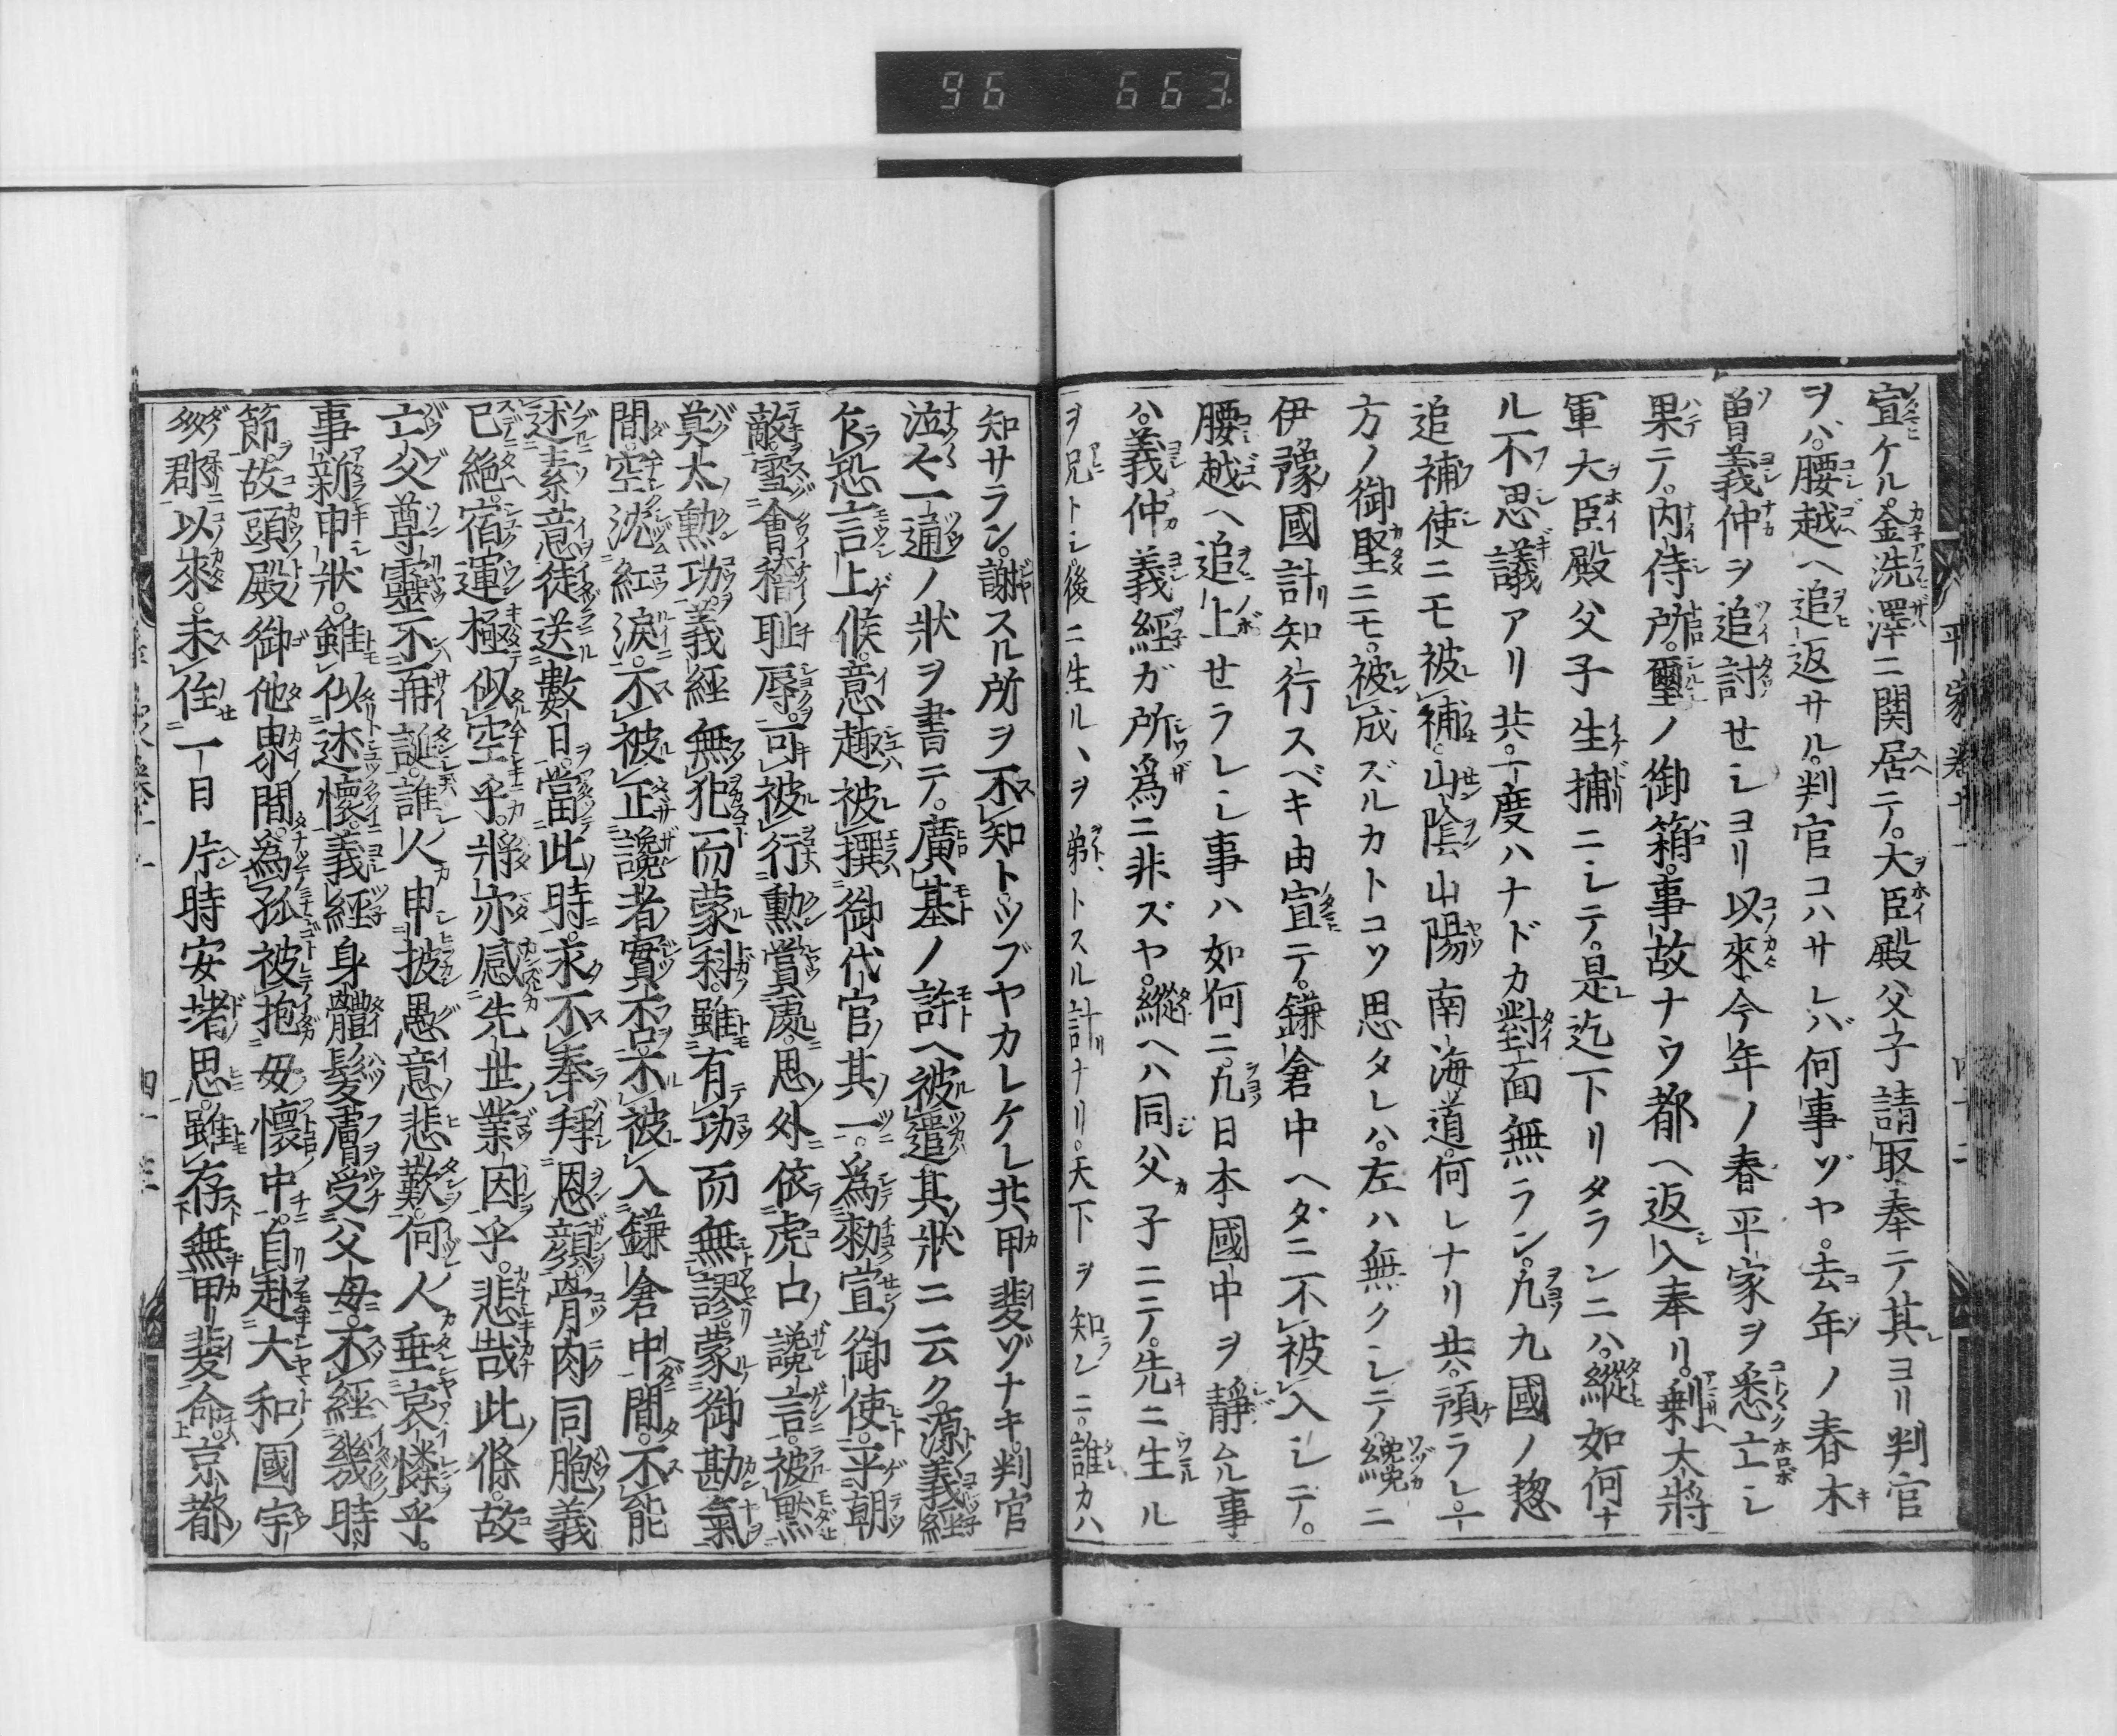 96 663
宣ケル。金洗澤ニ関居テ。大臣殿父子請取奉テ其ヨリ判官
ヲバ。腰越ヘ追返サル。判官コハサレバ何事ゾヤ。去年ノ春木
曽義仲ヲ追討セシヨリ以來。今年ノ春平家ヲ悉亡シ
果テ。内侍所。璽ノ御箱。事故ナウ都ヘ返入奉リ。剰大將
軍大臣殿父子生捕ニシテ。是迄下リタランニハ。縱如何ナ
ル不思議アリ共。一度ハナドカ對面無ラン。凡九國ノ惣
追補使ニモ被補。山陰山陽南海道。何レナリ共。預ケラレ。一
方ノ御堅ニモ。被成ズルカトコソ思タレハ。左ハ無クシテ。纔ニ
伊豫國計知行スベキ由宣テ。鎌倉中ヘダニ不被入シテ。
腰越ヘ追上セラレシ事ハ如何ニ。凡日本國中ヲ靜ムル事
ハ。義仲義經ガ所爲ニ非ズヤ。縱ヘハ同父子ニテ。先ニ生ル
ヲ兄トシ。後ニ生ル丶ヲ弟トスル計ナリ。天下ヲ知ンニ。誰カハ
知サラン。謝スル所ヲ不知トツブヤカレケレ共甲斐ゾナキ。判官
泣〻一通ノ狀ヲ書テ。廣基ノ許ヘ被遣其狀ニ云ク。源義經
乍恐言上候。意趣被撰御代官其一。為勅宣御使。平朝
敵。雪會稽耻辱。可被行勲賞處。思外依虎口讒言。被黙
莫太勲功。義經無犯而蒙科。雖有功而無謬。蒙御勘氣
間。空沈紅淚。不被正讒者實否。不被入鎌倉中間。不能
述素意徒送數日。當此時。永不奉拜恩顔。骨肉同胞義
已絶。宿運極似空乎。將亦感先世業因乎。悲哉此條。故
亡父尊靈不再誕。誰人申披愚意悲歎。何人垂哀憐乎。
事新申狀。雖似述懷。義經身體髮膚受父母。不經幾時
節。故頭殿御他界間。為孤被抱母懷中。自赴大和國宇
多郡以來。未住一日片時安堵思。雖存無甲斐命。京都